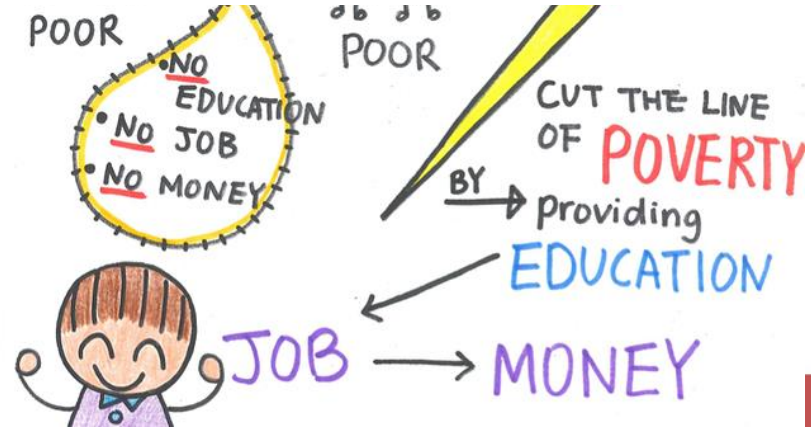 POOR
POOR
•NO
EDUCATION
• NO JOB
• NO MONEY
CUT THE LINE
OF POVERTY
BY
providing
EDUCATION
JOB
MONEY